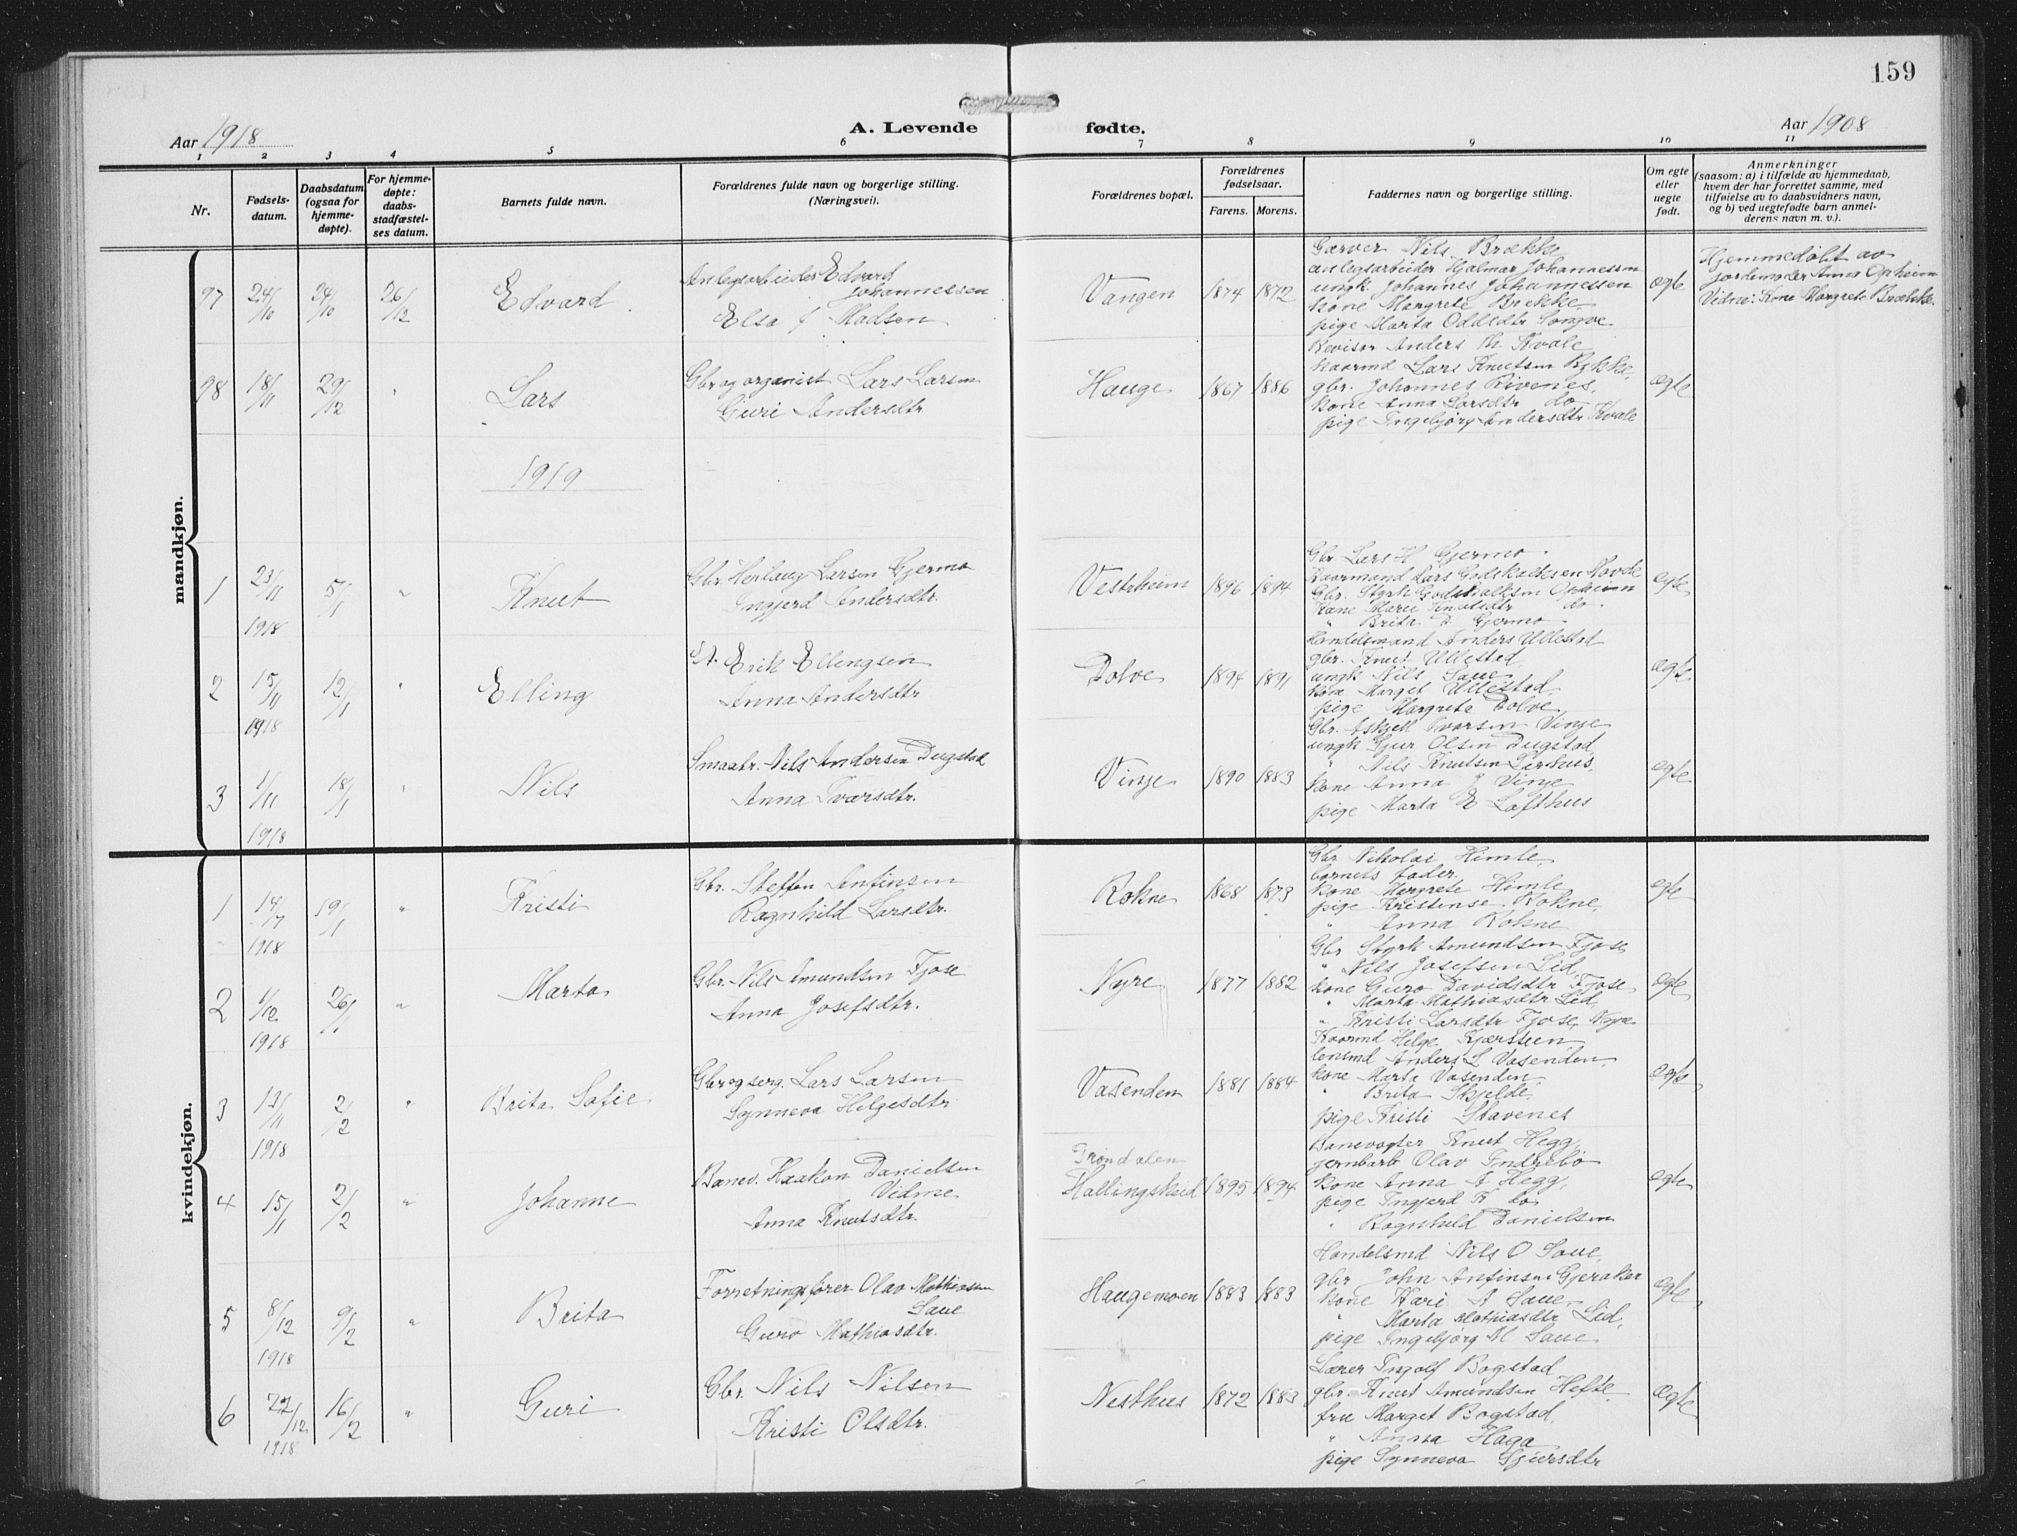 159
Aar 1918
A. Levende
fødte.
Aar 1908
1 2 3 4 5 6 7 8 9 10 11
Nr.
Fødsels-
datum.
Daabsdatum
(ogsaa for
hjemme-
døpte).
For hjemme-
døpte:
daabs-
stadfæstel-
ses datum.
Barnets fulde navn.
Forældrenes fulde navn og borgerlige stilling.
(Næringsvei).
Forældrenes bopæl.
Forældrenes
fødselsaar.
Farens. Morens.
Faddernes navn og borgerlige stilling.
Om egte
eller
uegte
født.
Anmerkninger
(saasom: a) i tilfælde av hjemmedaab,
hvem der har forrettet samme, med
tilføielse av to daabsvidners navn,
og b) ved uegtefødte barn anmel-
derens navn m. v.).
mandkjøn.
97 24/10 24/10 26/12 Edvard
Anlegsarbeider Edvard
Johannessen
Elsa J Madsen
Vangen 1874 1872
Garver Nils Brække
anlegsarbeider Hjalmar Johannessen
ungk Johannes Johannessen
kone Margrete Brekke
pige Marta Oddsdtr Songve
egte
Hjemmedøbt av
jordemoder Anna Opheim
Vidne: Kone Margrete Brække
98 18/11 29/12 " Lars
Gbr og organist Lars Larsen
Guri Andersdtr
Hauge 1867 1886
Revisor Anders Th. Kvale
kaarmd Lars Knutsen Rykke,
gbr. Johannes Rivenes,
kone Anna Larsdtr do
pige Ingebjørg Andersdtr Kvale
egte
1919
1 23/11 1918 5/1 " Knut
Gbr. Herlaug Larsen Gjermo
Ingjerd Andersdtr.
Vestrheim 1896 1894
Gbr Lars H Gjermo
Kaarmand Lars Godskalksen Hovde
Gbr. Styrk Godskalksen Opheim
Kone Mari Knutsdtr do
" Brita Gjermo
egte
2 15/11 1918 12/1 " Elling
A. Erik Ellingsen
Anna Andersdtr
Dolve 1894 1891
Handelsmand Anders Ullestad
gbr. Knut Ullestad
ungk Nils Saue
kone Marget Ullestad
pige Margreta Dolve
egte
3 1/11 1918 18/1 " Nils
Smaabr. Nils Andersen Dugstad
Anna Ivarsdtr.
Vinje 1890 1883
Gbr. Askjell Ivarsen Vinje
ungk Gjur Olsen Dugstad
" Nils Knutsen Lirhus,
kone Anna J Vinje
pige Marta E Lofthus
egte
kvindekjøn.
1 14/7 1918 19/1 " Kristi
Gbr. Steffen Anfinsen
Ragnhild Larsdtr.
Rokne 1868 1873
Gbr Nikolai Himle,
barnets fader.
kone Margrete Himle
pige Kristense Rokne,
" Anna Rokne
egte
2 1/12 1918 26/1 " Marta
Gbr. Nils Amundsen Fjose
Anna Josefsdtr.
Nyre 1877 1882
Gbr Styrk Amundsen Fjose
" Nils Josefsen Lid,
kone Guro Davidsdtr Fjose
" Marta Mathiasdtr Lid,
" Kristi Larsdtr Fjose, Nyre
egte
3 12/11 1918 2/2 " Brita Sofie
Gbr og serg. Lars Larsen
Synneva Helgesdtr
Vasenden 1881 1884
Kaarmd Helge Kjærstien
lensmd Anders L Vasenden
kone Marta Vasenden
" Brita Skjelde
pige Kristi Stavenes
egte
4 15/1 2/2 " Johanne
Banev. Haakon Danielsen
Vidme
Anna Knutsdtr.
Grøndalen
Hallingskeid 1895 1894
Banevogter Knut Hegg,
jernbarb Olav Indrebø
kone Anna A Hegg,
pige Ingjerd K do
" Ragnhild Danielsen
egte
5 8/12 1918 9/2 " Brita
Forretningsfører Olav Mathiassen
Saue
Guro Mathiasdtr.
Haugemoen 1883 1883
Handelsmd Nils O Saue,
gbr John Anfinsen Gjeraker
kone Kari A Saue,
" Marta Mathiasdtr Lid,
pige Ingebjørg M Saue
egte
6 22/12 1918 16/2 " Guri
Gbr. Nils Nilsen
Kristi Olsdtr.
Nesthus 1872 1883
Lærer Ingolf Bogstad
gbr. Knut Amundsen Hefte
fru Marget Bogstad
" Anna Haga
pige Synneva Gjursdtr
egte